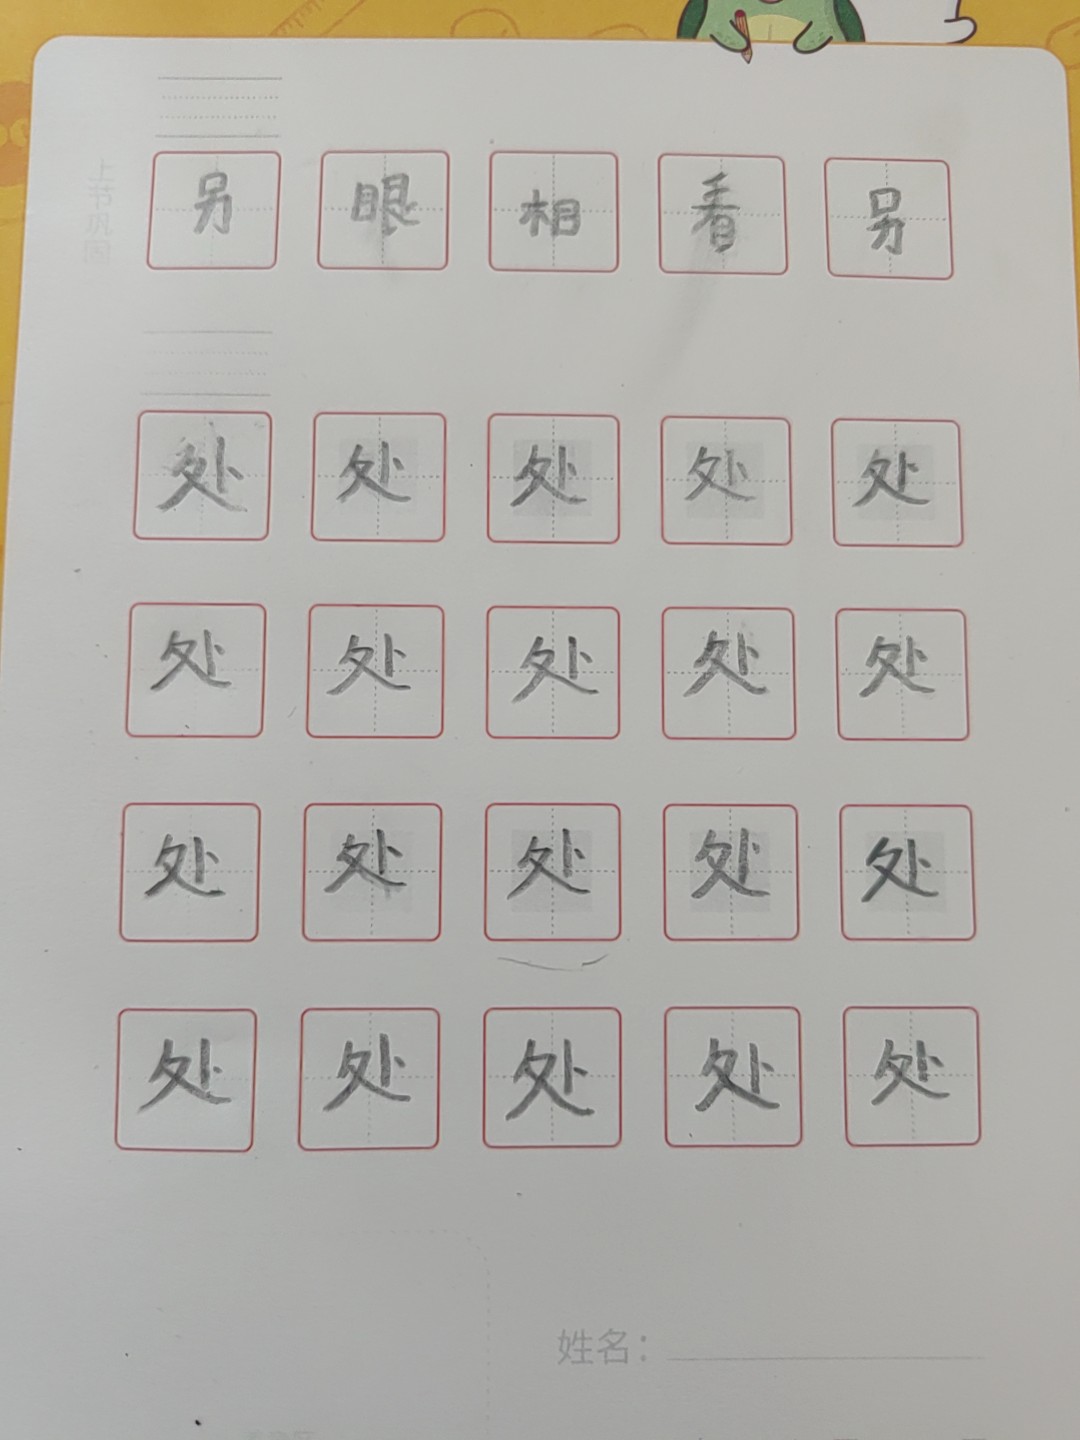 上节巩固
另 眼 相 看 另
处 处 处 处 处
处 处 处 处 处
处 处 处 处 处
处 处 处 处 处
姓名：